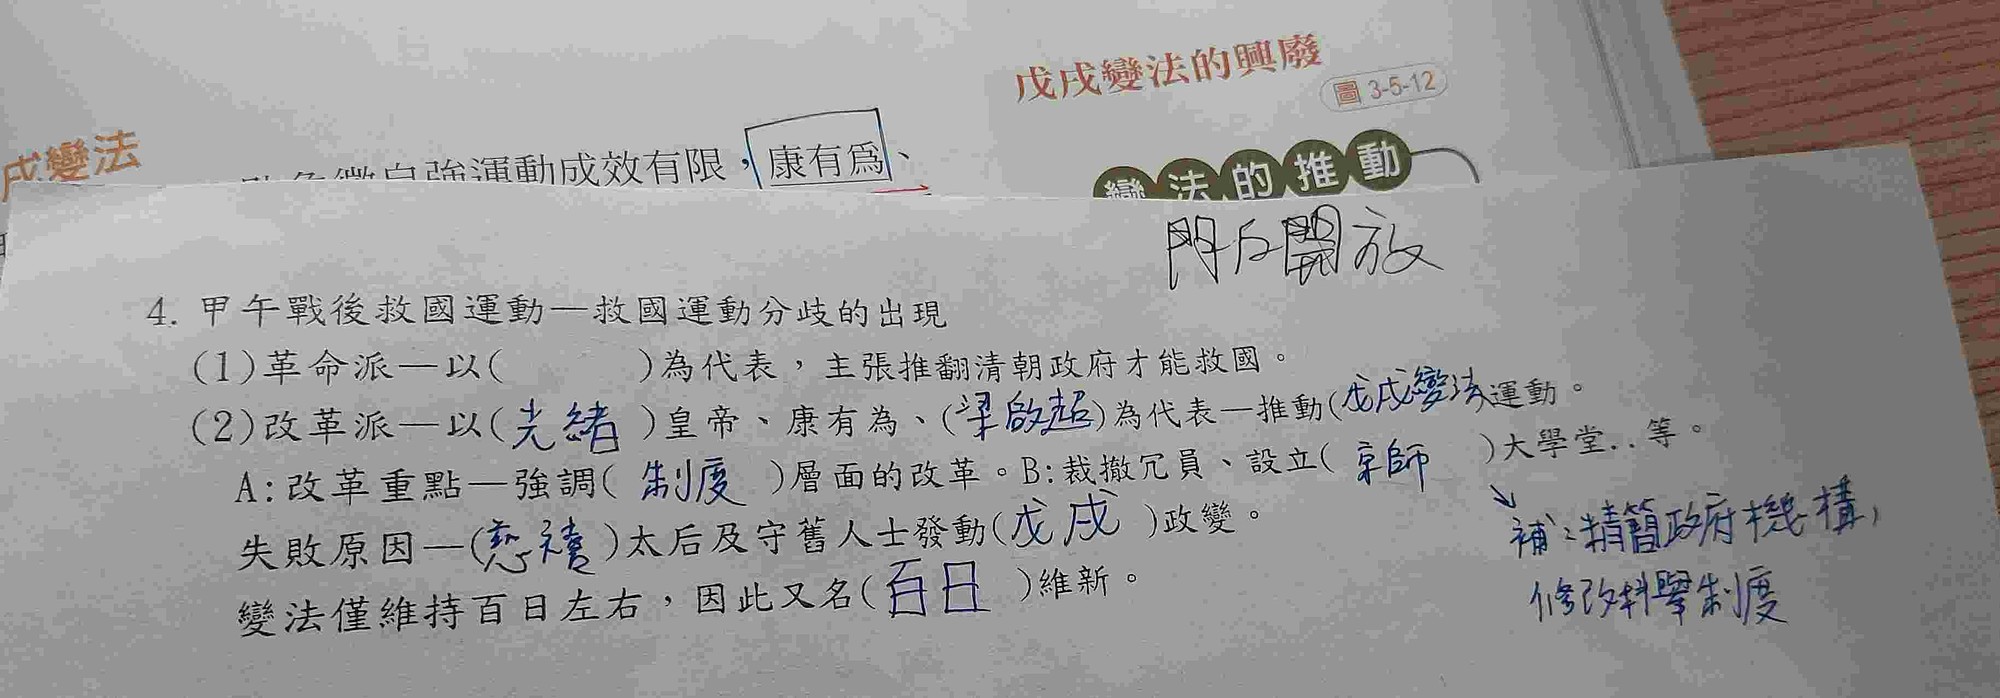 戊戌變法的興廢
圖 3-5-12
戌變法
自強運動成效有限，康有為、
變法的推動
門戶開放
4. 甲午戰後救國運動—救國運動分歧的出現
(1)革命派—以(　　　)為代表，主張推翻清朝政府才能救國。
(2)改革派—以(光緒)皇帝、康有為、(梁啟超)為代表—推動(戊戌變法)運動。
A:改革重點—強調(制度)層面的改革。B:裁撤冗員、設立(京師)大學堂..等。
失敗原因—(慈禧)太后及守舊人士發動(戊戌)政變。
變法僅維持百日左右，因此又名(百日)維新。
補:精簡政府機構,
修改科舉制度